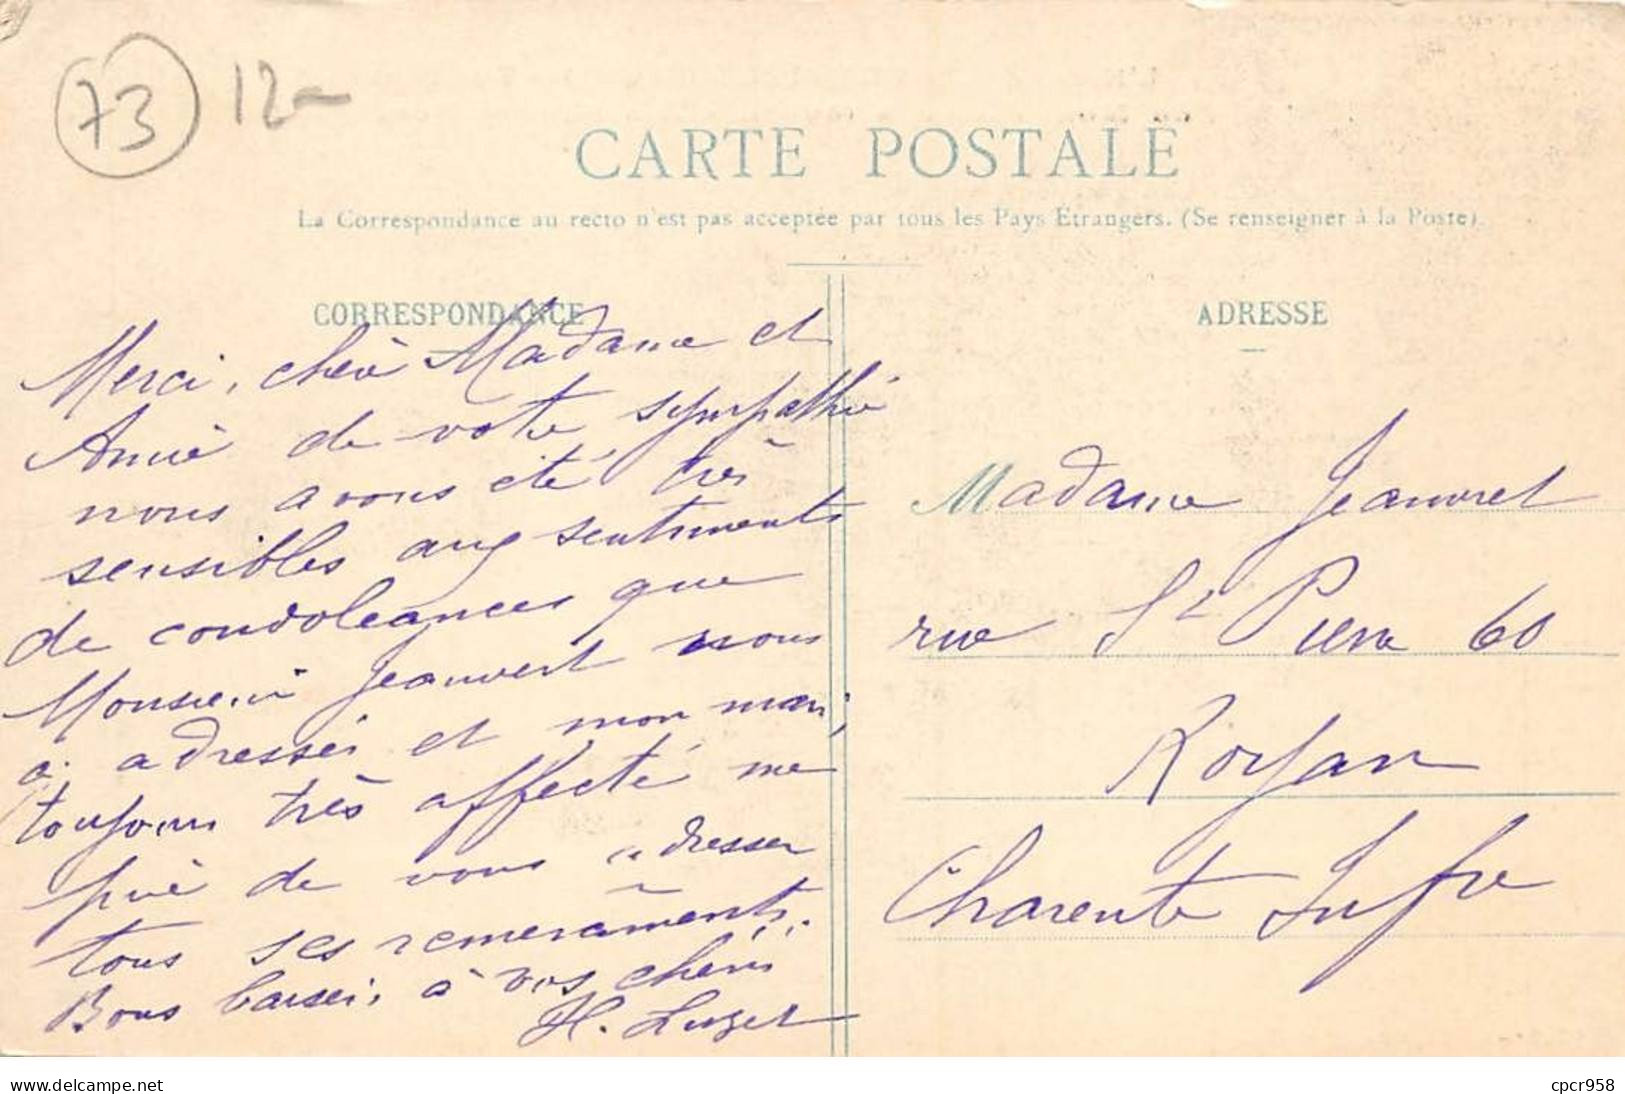 73 12-
CARTE POSTALE
La Correspondance au recto n'est pas acceptée par tous les Pays Étrangers. (Se renseigner à la Poste).
CORRESPONDANCE
Merci, chère Madame et
Amie de votre sympathie
nous avons été très
sensibles aux sentiments
de condoléances que
Monsieur Jeanvret nous
a adressés et mon mari,
toujours très affecté me
prie de vous adresser
tous ses remerciements.
Bons baisers à vos chéris
H. Luzet
ADRESSE
Madame Jeanvret
rue St Pierre 60
Royan
Charente Infre
delcampe.net
cpcr958